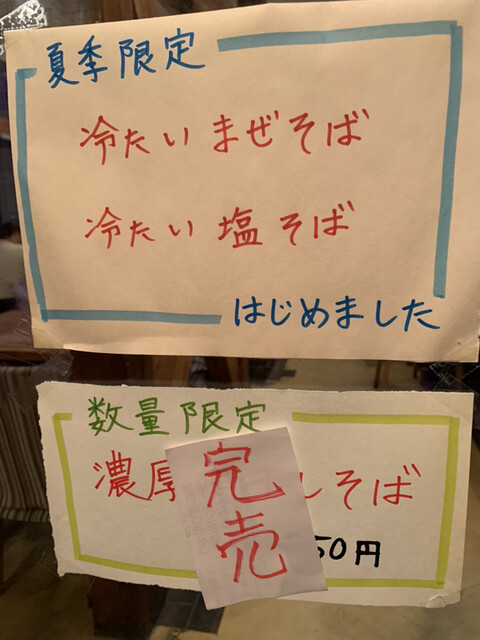 夏季限定
冷たいまぜそば
冷たい塩そば
はじめました
数量限定
濃厚
しそば
完売
50円